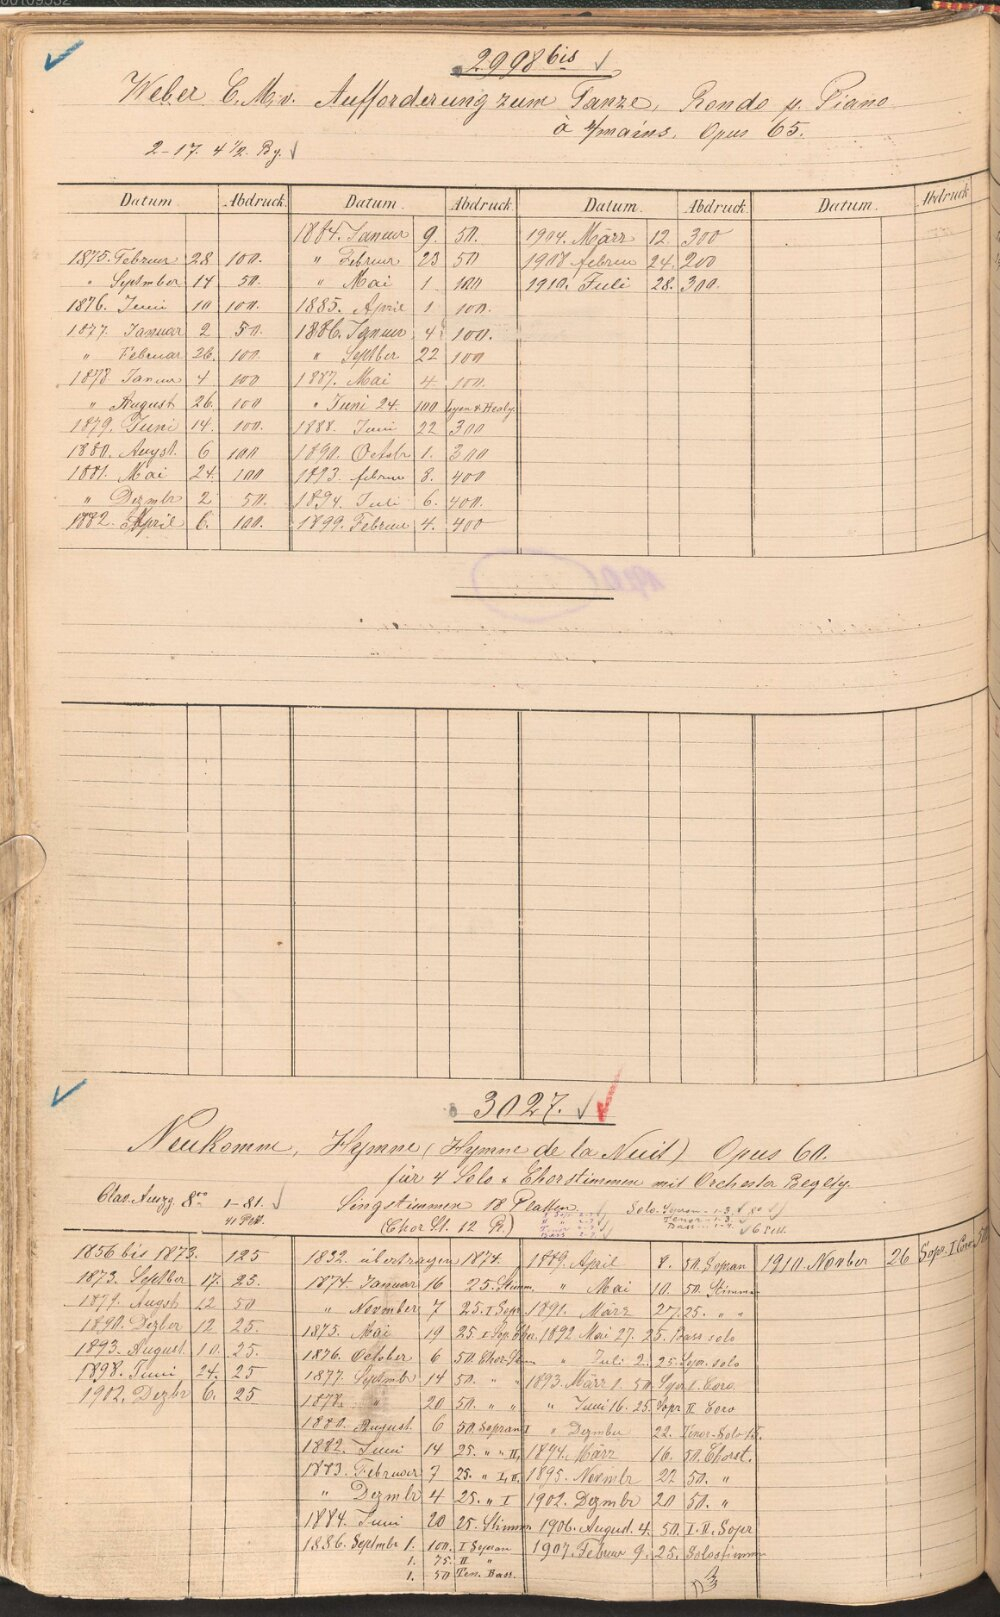 2998 bis
Weber C. M. v. Aufforderung zum Tanze, Rondo p. Piano
à 4/mains. Opus 65.
2-17. 4 1/2. Bg.
Datum Abdruck. Datum. Abdruck Datum. Abdruck Datum. Abdruck
1875. Februar 28 100.
" Septmber 14 50.
1876. Juni 10 100.
1877. Januar 2 50.
" Februar 26. 100.
1878 Januar 4 100
" August 26. 100
1879. Juni 14. 100.
1880. Augst. 6 100
1881. Mai 24. 100
" Dezmbr 2 50.
1882. April 6. 100.
1884. Januar 9. 50.
" Februar 23 50
" Mai 1 100
1885. April 1 100.
1886. Januar 4 100.
" Septber 22 100
1887. Mai 4. 100.
" Juni 24. 100 Lyon & Healy.
1888. Juni 22 300
1890. Octobr 1. 300
1893. febru 8. 400
1894. Juli 6. 400.
1899. Februar 4. 400
1904. März 12. 300
1908 febru 24. 200
1910. Juli 28. 300.
3027.
Neukomm, Hymne (Hymne de la Nuit) Opus 60.
für 4 Solo & Chorstimmen mit Orchester Begltg.
Clav. Auszg. 8vo 1-81.
Singstimmen 18 Platten.
(Chor St. 12 P.)
1856 bis 1873. 125
1873. Septber 17. 25.
1879. Augst 12 50
1890. Dezber 12 25.
1893. August 10. 25.
1898. Juni 24. 25
1902. Dezbr 6. 25
1832. übertragen 1874.
1874. Januar 16 25. Stimm.
" Novmber 7 25. I Sopr.
1875. Mai 19 25 I Sop. Chor.
1876. October 6 50. Chor Stim
1877. Septmbr 14 50. " "
1878. " 20 50. " "
1880. August 6 50 Sopran I
1882. Juni 14 25. " " II
1883. Februar 7 25. " I, II.
" Dezmbr 4 25. " I
1884. Juni 20 25. Stimm
1886. Septmbr 1. 100. I Sopran
1. 75. II "
1. 50 Ten. Bass.
1889. April 8. 50. Sopran
" Mai 10. 50. Stimmen
1891. März 27. 25. " "
1892 Mai 27. 25. Bass solo
" Juli 2. 25. Sopr. solo
1893. März 1. 50. Sopr I. Coro.
" Juni 16. 25. Sopr II Coro
" Dezmber 22. Tenor-Solo
1894. März 16. 50. Chorst.
1895. Novmbr 22 50. "
1902. Dezmbr 20 50. "
1906. August. 4. 50. I. II. Sopr
1907. Februar 9. 25. Solostimmen
1910. Novber 26 Sopr. I Coro 50